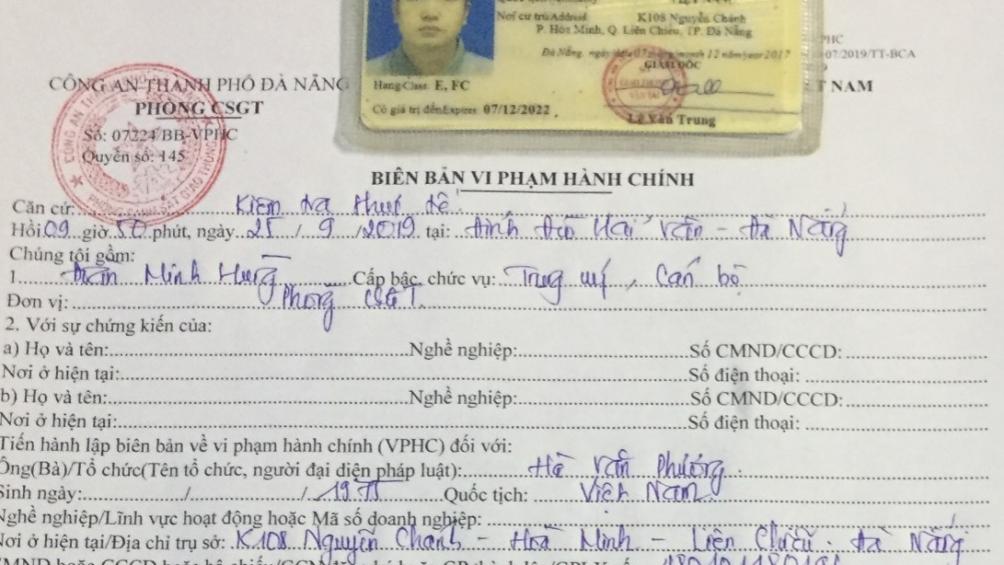 Nơi cư trú/Address K108 Nguyễn Chánh
P. Hòa Minh, Q. Liên Chiểu, TP. Đà Nẵng
Đà Nẵng, ngày/date 07 tháng/month 12 năm/year 2017
GIÁM ĐỐC
Hạng/Class: E, FC
Có giá trị đến/Expires: 07/12/2022
Lê Văn Trung
PHC
07/2019/TT-BCA
CÔNG AN THÀNH PHỐ ĐÀ NẴNG
T NAM
PHÒNG CSGT
Số: 07224/BB-VPHC
Quyển số: 145
BIÊN BẢN VI PHẠM HÀNH CHÍNH
Căn cứ: Kiểm tra thực tế
Hồi 09 giờ 50 phút, ngày 25 / 9 /2019 tại: Đỉnh đèo Hải Vân - Đà Nẵng
Chúng tôi gồm:
1. Minh Hưng Cấp bậc, chức vụ: Trung uý, Cán bộ
Đơn vị: Phòng CSGT
2. Với sự chứng kiến của:
a) Họ và tên: Nghề nghiệp: Số CMND/CCCD:
Nơi ở hiện tại: Số điện thoại:
b) Họ và tên: Nghề nghiệp: Số CMND/CCCD:
Nơi ở hiện tại: Số điện thoại:
Tiến hành lập biên bản về vi phạm hành chính (VPHC) đối với:
Ông(Bà)/Tổ chức(Tên tổ chức, người đại diện pháp luật): Văn Phương
Sinh ngày: / / 1975 Quốc tịch: Việt Nam
Nghề nghiệp/Lĩnh vực hoạt động hoặc Mã số doanh nghiệp:
Nơi ở hiện tại/Địa chỉ trụ sở: K108 Nguyễn Chánh - Hoà Minh - Liên Chiểu - Đà Nẵng